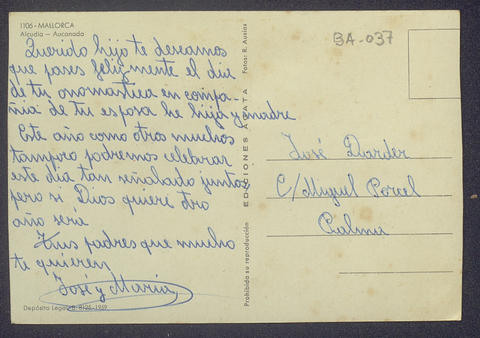 1106 - MALLORCA
Alcudia - Aucanada
Querido hijo te deseamos
que pases felizmente el dia
de tu onomastica en compa-
ñia de tu esposa he hija y madre
Este año como otros muchos
tampoco podremos celebrar
este dia tan señalado juntos
pero si Dios quiere otro
año sera
Tus padres que mucho
te quieren
José y Maria
Depósito Legal B. 8126-1959
Fotos: R. Ausias
EDICIONES
Prohibida su reproducción
BA-037
José Dorder
C/ Miguel Porcel
Palma